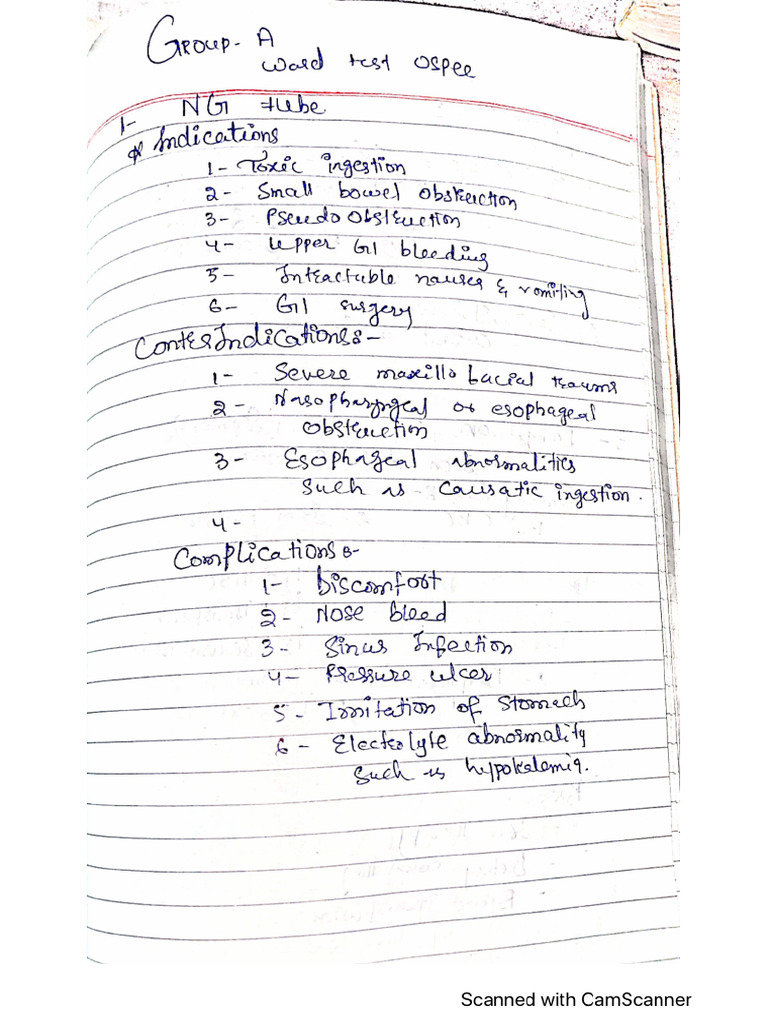 Group- A
Ward test OSPEE
1- NG tube
* Indications
1- Toxic ingestion
2- Small bowel obstruction
3- Pseudo obstruction
4- Upper GI bleeding
5- Intractable nausea & vomiting
6- GI surgery
ContraIndications:-
1- Severe maxillo facial trauma
2- Nasopharyngeal or esophageal
obstruction
3- Esophageal abnormalities
such as causatic ingestion.
4-
Complications:-
1- Discomfort
2- Nose bleed
3- Sinus Infection
4- Pressure ulcer
5- Irritation of stomach
6- Electrolyte abnormality
such is hypokalemia.
Scanned with CamScanner